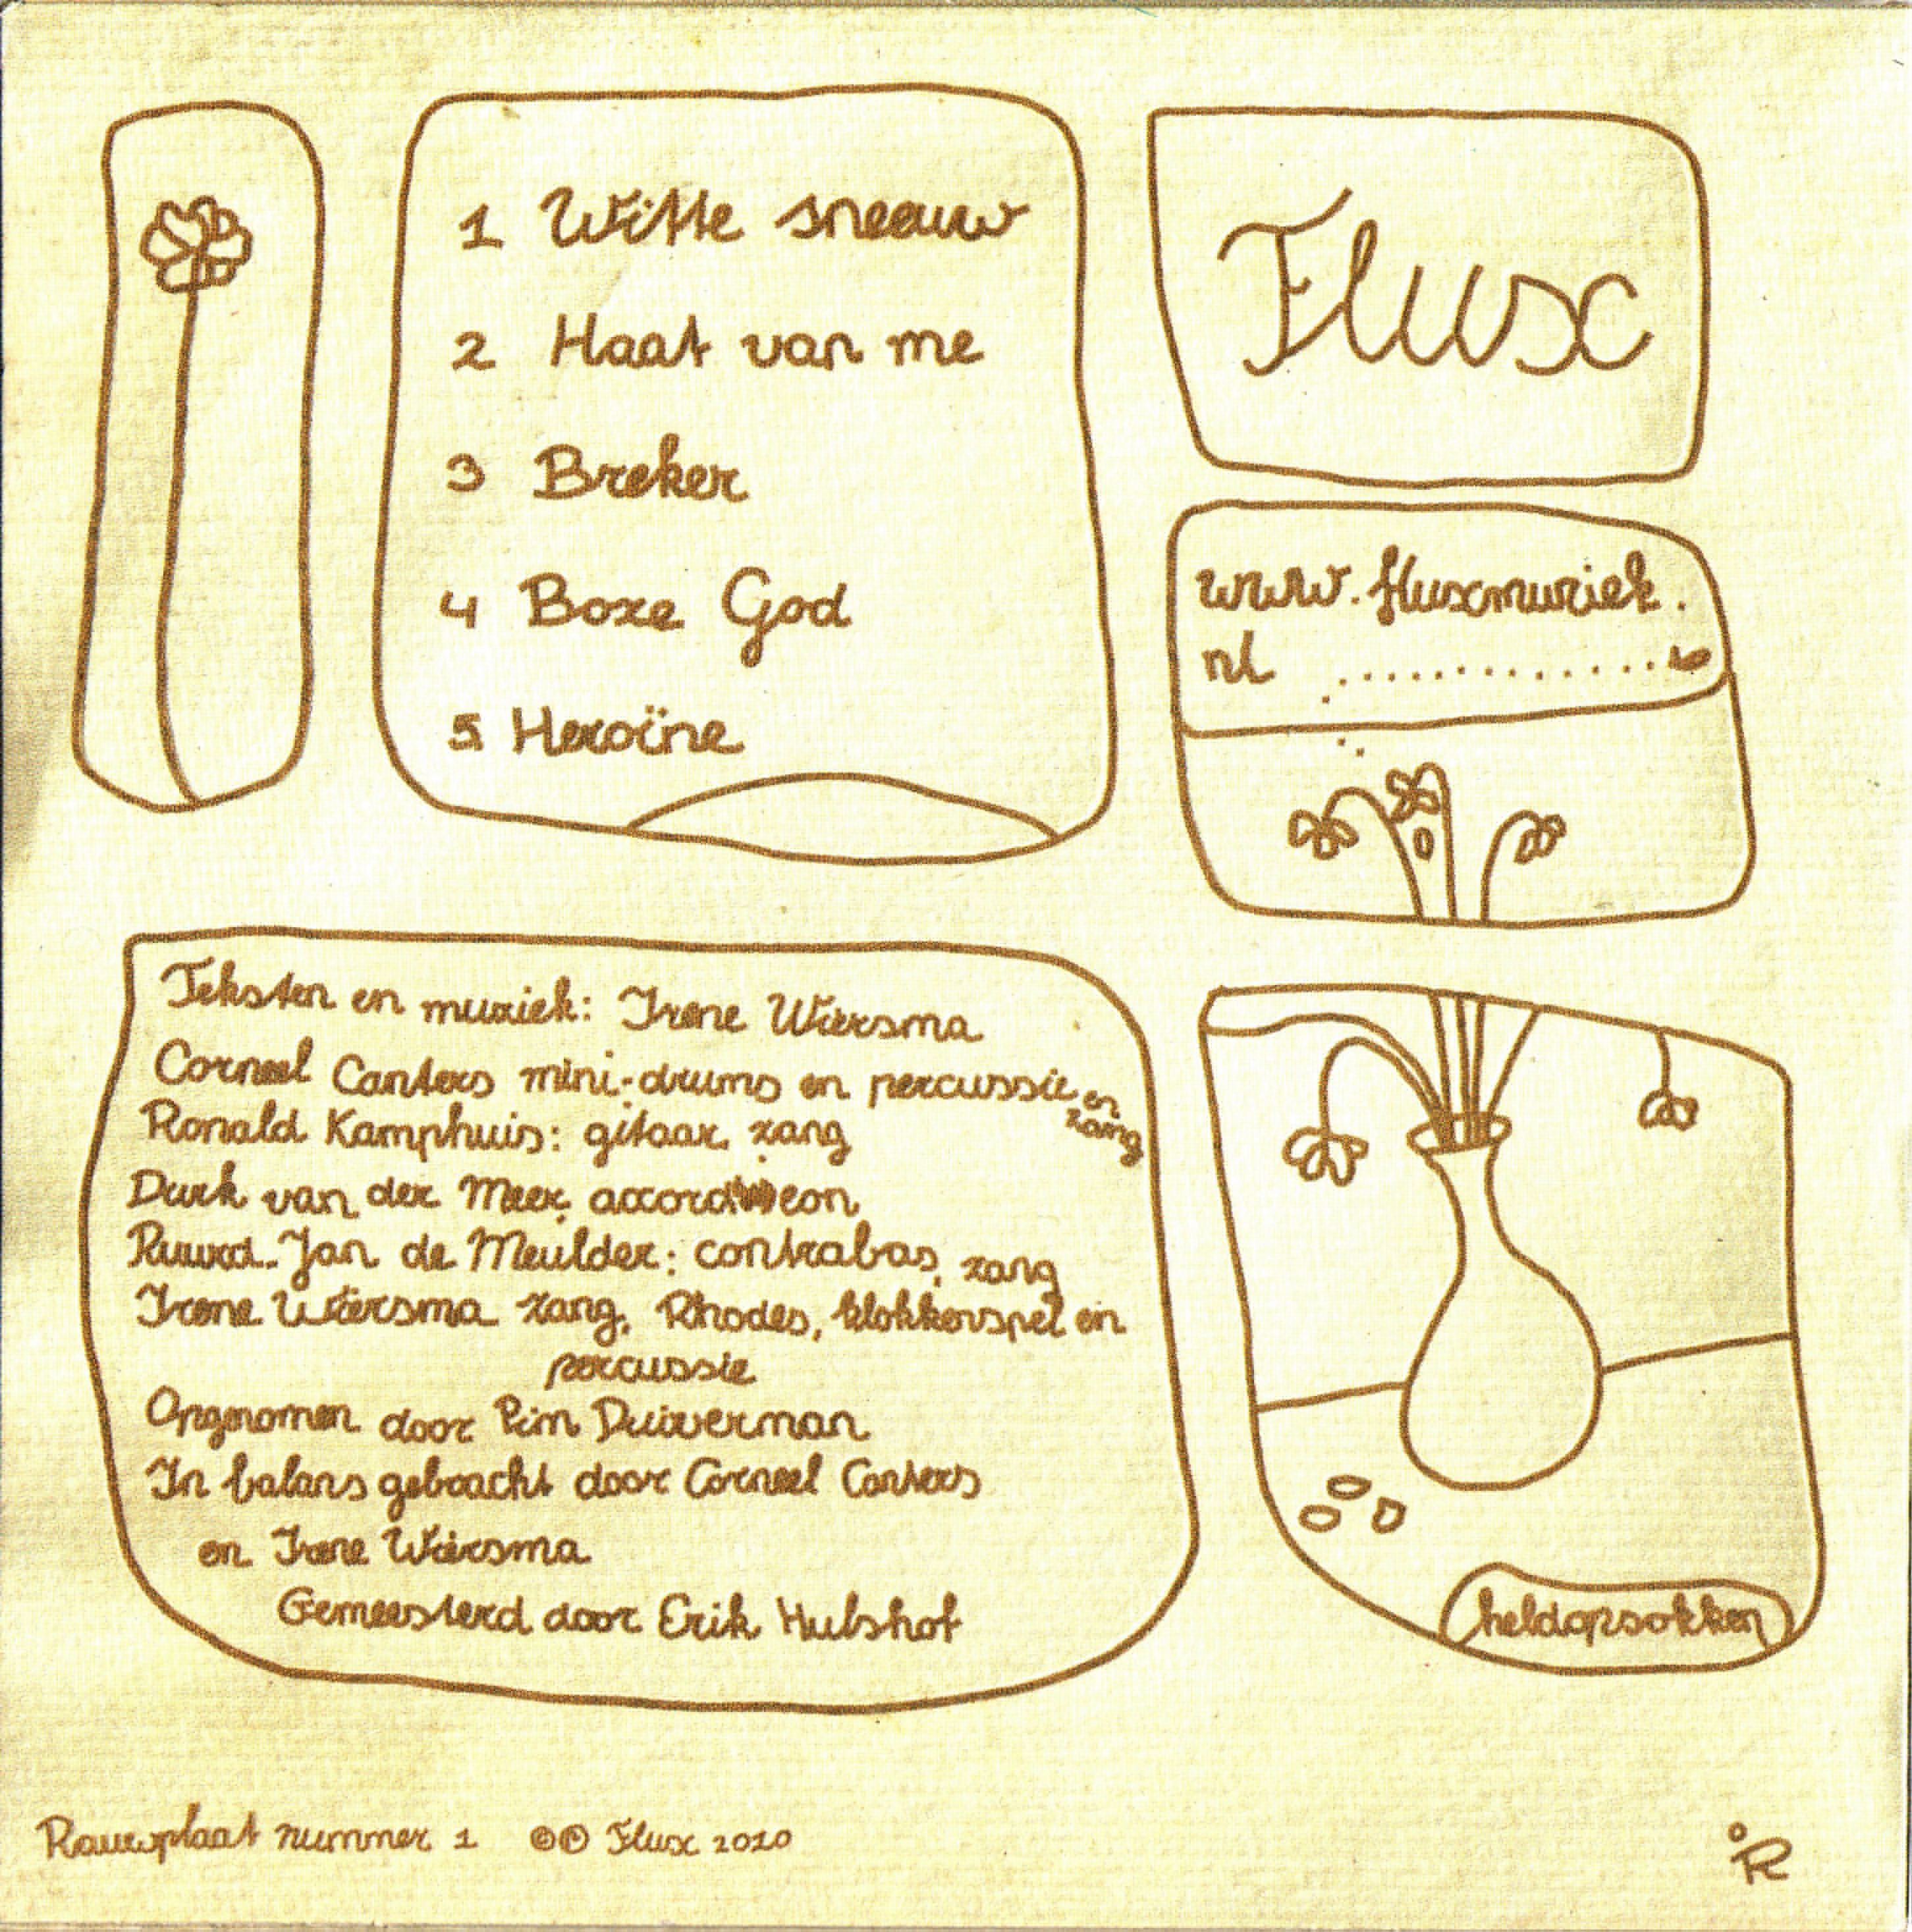 1 Witte sneeuw
2 Haat van me
3 Breker
4 Boze God
5 Heroïne
Flux
www.fluxmuziek.
nl
Teksten en muziek: Irene Wiersma
Corneel Canters mini-drums en percussie en
zang
Ronald Kamphuis: gitaar, zang
Durk van der Meer, accordeon
Ruurd-Jan de Meulder: contrabas, zang
Irene Wiersma zang, Rhodes, klokkenspel en
percussie
Opgenomen door Pim Duiverman
In balans gebracht door Corneel Canters
en Irene Wiersma
Gemeesterd door Erik Hulshof
heldopsokken
Rauwplaat nummer 1 ©℗ Flux 2010